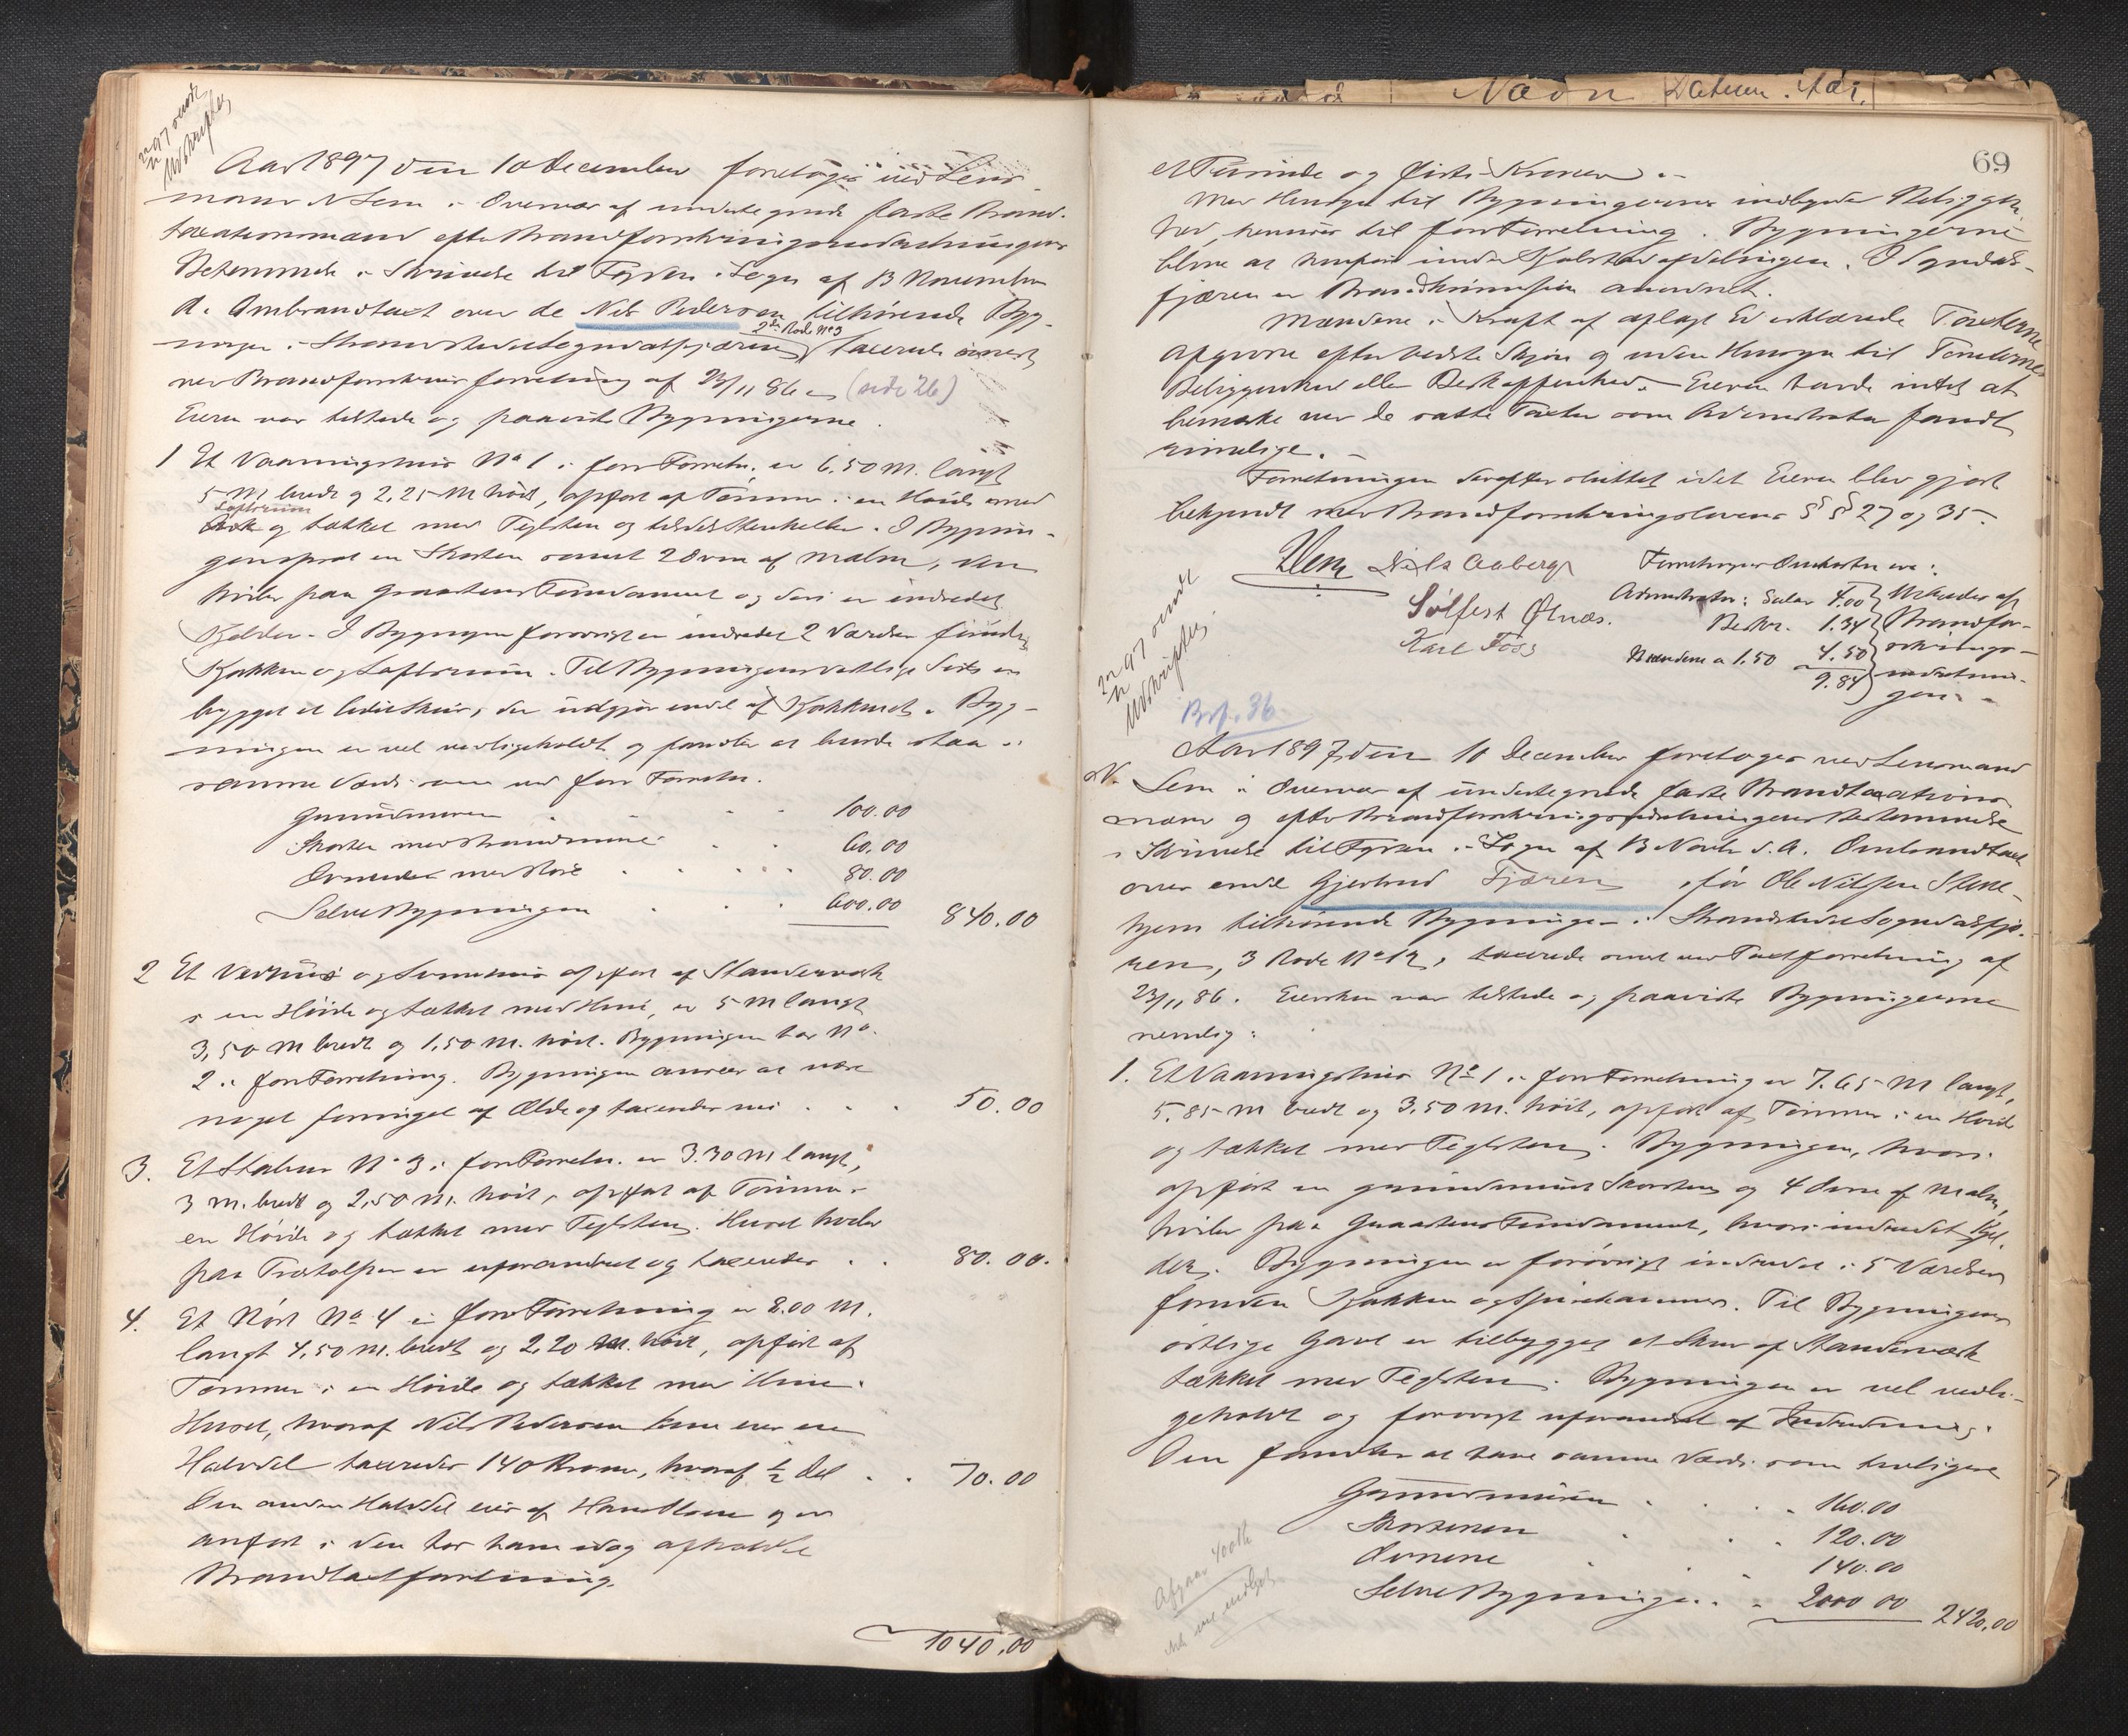 22/12 97 sendt
Udskriftes
Aar 1897 den 10 December foretoges ved Lens-
mann N Lem i Overvær af undertegnede faste Brand-
taxationsmænd efter Brandforsikringsindretningens
Bestemmelse i Skrivelse til Fogden i Sogn af 13 November
d. A. Ombrandtaxt over de Nils Pedersen tilhørende Byg-
2den Rode No 3
ninger i Strandstedet Sogndalsfjæren taxerede senest
ved Brandforsikringsforretning af 23/11 86 (side 26)
Eieren var tilstede og paaviste Bygningerne.
1 Et Vaaningshus No 1 i forr Forretn. er 6,50 M. langt
5 M bredt og 2,25 M høit, opført af Tømmer i en Høide med
Loftsrum
og tækket med Teglsten og tildels Stenheller. I Bygnin-
gen er opført en Skorsten samt 2 Ovne af Malm, den
hviler paa Graastens Fundament og deri er indredet
Kjelder. I Bygningen forøvrigt er indredet 2 Værelser foruden
Kjøkken og Loftsrum. Til Bygningens vestlige Side er
bygget et lidet Skur, der udgjør endel af Kjøkkenet. Byg-
ningen er vel vedligeholdt og fandtes at burde staa i
samme Værdi som ved forr Forretn.
Grundmuren 100.00
Skorsten med Brandmure 60.00
Ovnene med Rør 80.00
Selve Bygningen 600.00 840.00
2 Et Vedhus og Sommerfjøs opført af Standerværk
i en Høide og tækket med Hun, er 5 M langt
3,50 M bredt og 1,50 M. høit. Bygningen har No
2 i forr Forretning. Bygningen ansees at være
noget forringet af Ælde og taxeredes nu 50.00
3. Et Stabur No 3 i forr Forretn. er 3.30 M langt,
3 M. bredt og 2,50 M. høit, opført af Tømmer i
en Høide og tækket med Teglsten. Huset hviler
paa Træstolper er uforandret og taxeredes 80.00.
4. Et Nøst No 4 i forr Forretning er 8.00 M.
langt 4,50 M. bredt og 2,20 M. høit, opført af
Tømmer i en Høide og tækket med Hun.
Huset, hvoraf Nils Pedersen kun eier en
Halvdel taxeredes 140 Kroner, hvoraf 1/2 Del 70.00
Den anden Halvdel eies af Hans Moen og er
anført i den hos ham idag afholdte
Brandtaxtforretning.
1040.00
Navn Datum. Aar.
69
et Tusinde og firti Kroner.
Med Hensyn til Bygningernes indbyrdes Beliggen-
hed, henvises til forr Forretning. Bygningerne
blive at henføre under Kjøbstadafdelingen. I Sogndals-
fjæren er Brandkommission anordnet.
Mændene i Kraft af aflagt Ed erklærede Taxterne
afgivne efter bedste Skjøn og uden Hensyn til Tomternes
Beliggenhed eller Beskaffenhed. Eieren havde intet at
bemærke ved de satte Taxter som Administrator fandt
rimelige.
Forretningen derefter sluttet idet Eieren blev gjort
bekjendt med Brandforsikringslovens §§ 27 og 35.
NLem Nils Aaberge
Sølfest Ølnæs.
Karl Foss
Forretningens Omkostninger ere:
Administrator: Salær 4.00
Beskr. 1.34
Mændene a 1.50 4.50
9.84
Udredes af
Brandfor-
sikrings-
indretnin-
gen.
22/12 97 sendt
Udskriftes
Brf. 36
Aar 1897 den 10 December foretoges ved Lensmand
N. Lem i Overvær af undertegnede faste Brandtaxations-
mænd og efter Brandforsikringsindretningens Bestemmelse
i Skrivelse til Fogden i Sogn af 13 Novbr d. A. Ombrandtaxt
over endel Gjertrud Fjæren, før Ole Nilsen Stene-
hjem tilhørende Bygninger i Strandstedet Sogndalsfjæ-
ren, 3 Rode No 12, taxerede senest ved Taxtforretning af
23/11 86. Eiersken var tilstede og paaviste Bygningerne
nemlig:
1. Et Vaaningshus No 1 i forr Forretning er 7.65 M langt,
5.85 M bredt og 3,50 M. høit, opført af Tømmer i en Høide
og tækket med Teglsten. Bygningen, hvori
opført en grundmuret Skorsten og 4 Ovne af Malm,
hviler paa Graastens Fundament, hvori indredet Kjel-
der. Bygningen er forøvrigt indredet i 5 Værelser
foruden Kjøkken og Spisekammer. Til Bygningens
østlige Gavl er tilbygget et Skur af Standerværk
tækket med Teglsten. Bygningen er vel vedli-
geholdt og forøvrigt uforandret af Indredning.
Den fandtes at have samme Værdi som tidligere
Grundmuren 160.00
Skorstenen 120.00
Ovnene 140.00
Selve Bygningen 2000 00 2420.00
Afgaar